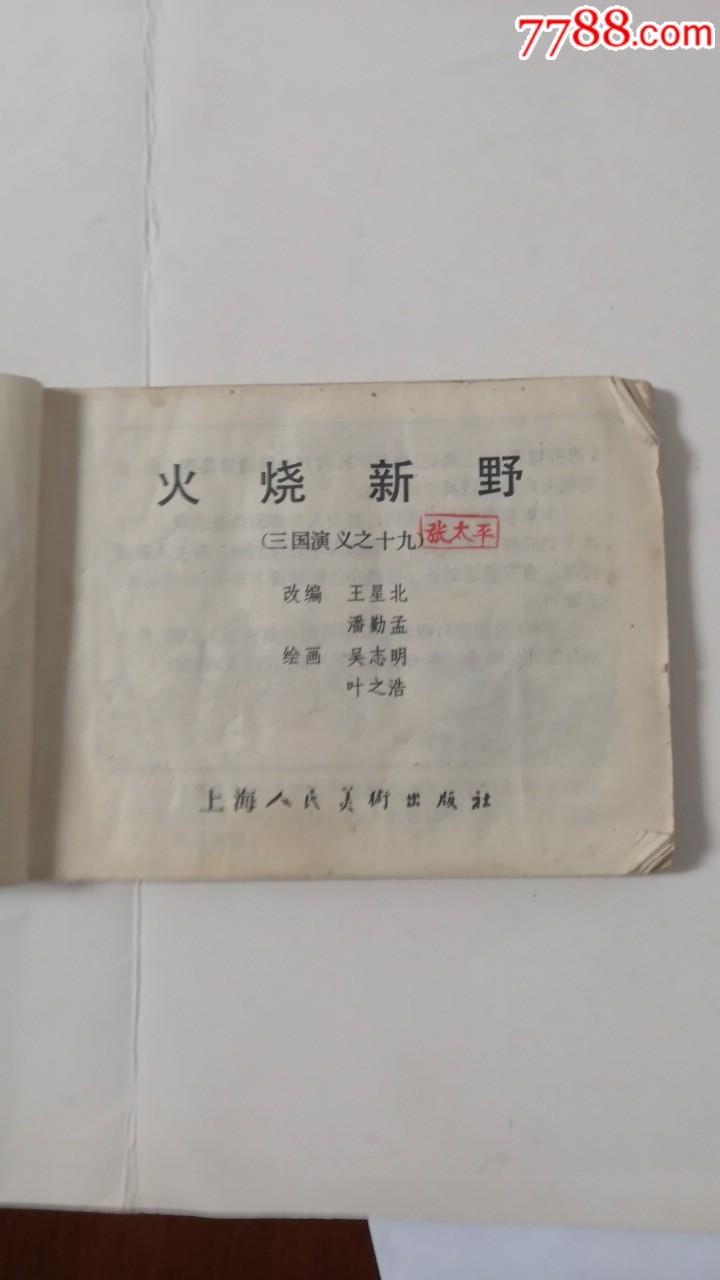 7788.com
火烧新野
(三国演义之十九) 张太平
改编 王星北
潘勤孟
绘画 吴志明
叶之浩
上海人民美術出版社